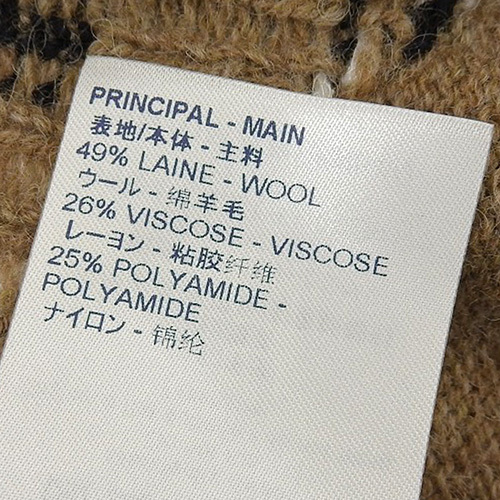 PRINCIPAL - MAIN
表地/本体 - 主料
49% LAINE - WOOL
ウール - 绵羊毛
26% VISCOSE - VISCOSE
レーヨン - 粘胶纤维
25% POLYAMIDE -
POLYAMIDE
ナイロン - 锦纶